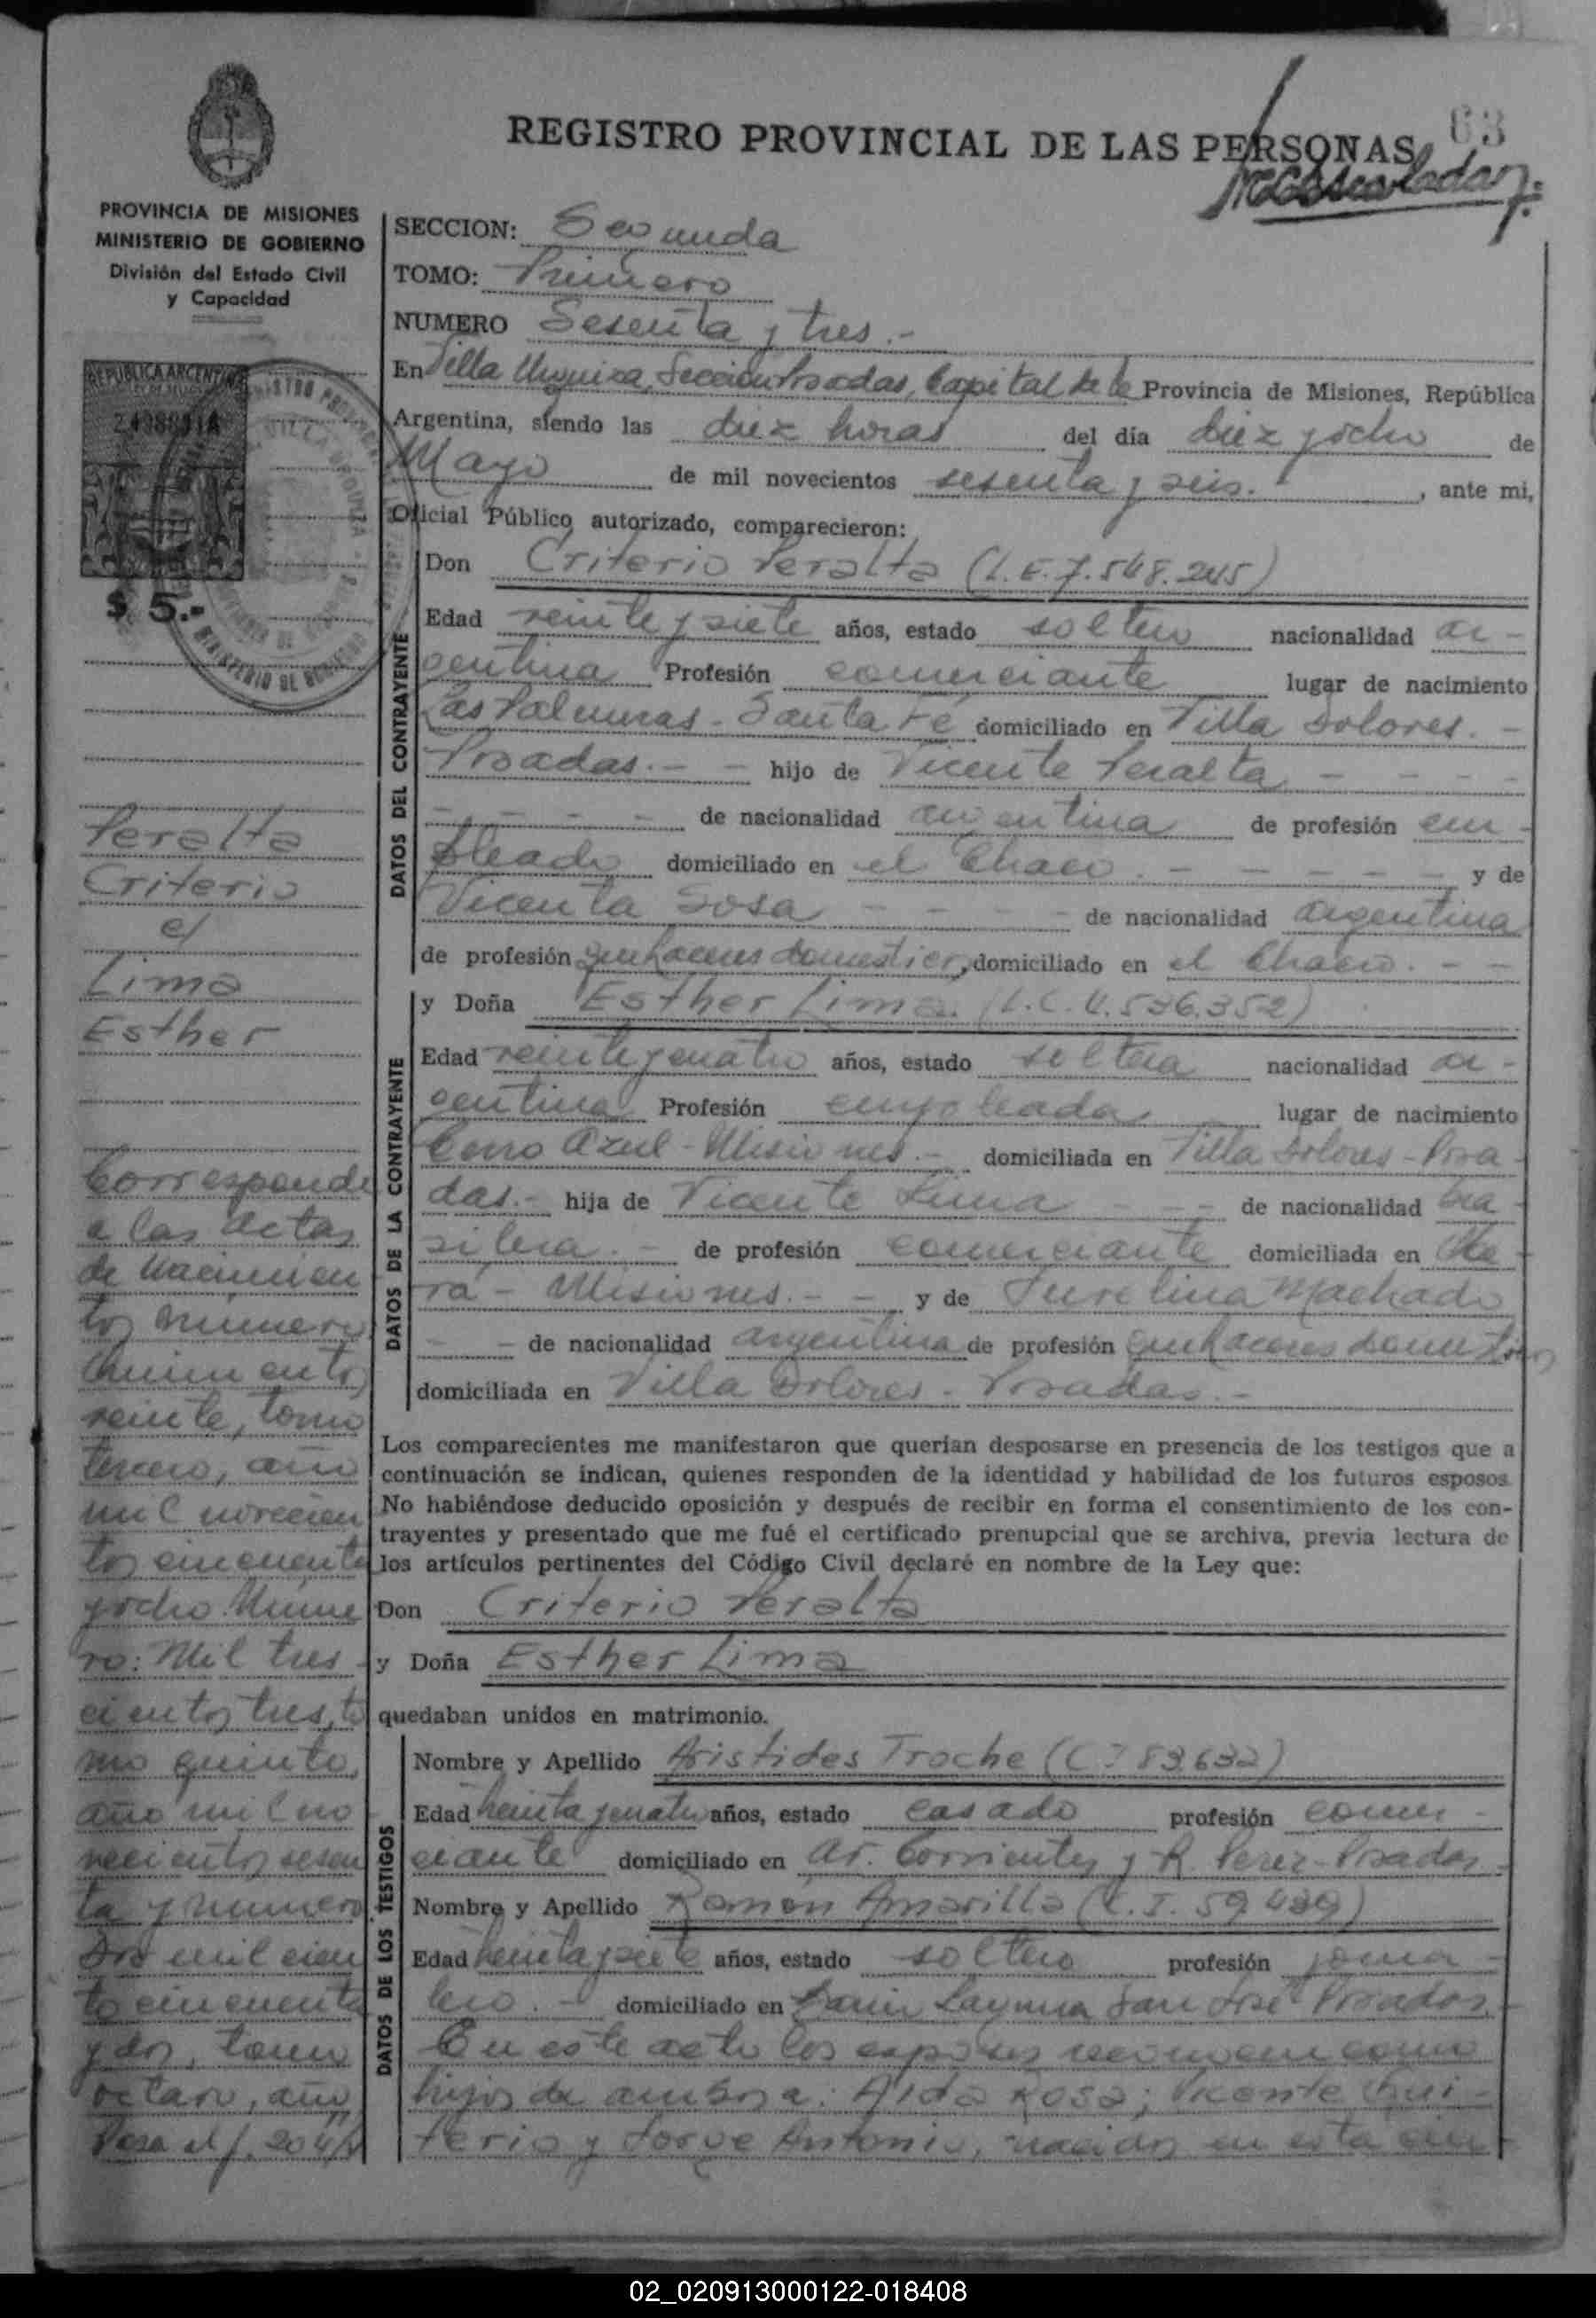 63
REGISTRO PROVINCIAL DE LAS PERSONAS
PROVINCIA DE MISIONES
MINISTERIO DE GOBIERNO
División del Estado Civil
y Capacidad
REPUBLICA ARGENTINA
$ 5.-
SECCION: Segunda
TOMO: Primero
NUMERO Sesenta y tres.-
En Villa Urquiza, Sección Posadas, Capital de la Provincia de Misiones, República
Argentina, siendo las diez horas del día diez y ocho de
Mayo de mil novecientos sesenta y seis. , ante mi,
Oficial Público autorizado, comparecieron:
DATOS DEL CONTRAYENTE
Don Criterio Peralta (L.E. 7.548.245)
Edad veinte y siete años, estado soltero nacionalidad ar-
gentina Profesión comerciante lugar de nacimiento
Las Palmeras - Santa Fé domiciliado en Villa Dolores. -
Posadas. - - hijo de Vicente Peralta - - - -
- - - - de nacionalidad argentina de profesión em-
pleado domiciliado en el Chaco. - - - - - - y de
Vicenta Sosa - - - - - de nacionalidad argentina
de profesión quehaceres domesticos, domiciliado en el Chaco. - -
DATOS DE LA CONTRAYENTE
y Doña Esther Lima. (L.C. 4.536.352)
Edad veinte y cuatro años, estado soltera nacionalidad ar-
gentina Profesión empleada lugar de nacimiento
Cerro Azul - Misiones. - domiciliada en Villa Dolores - Posa-
das. - hija de Vicente Lima - - - de nacionalidad bra-
silera. - de profesión comerciante domiciliada en Obe-
rá - Misiones. - - y de Machado
- - de nacionalidad argentina de profesión quehaceres domesticos
domiciliada en Villa Dolores - Posadas. -
Los comparecientes me manifestaron que querían desposarse en presencia de los testigos que a
continuación se indican, quienes responden de la identidad y habilidad de los futuros esposos
No habiéndose deducido oposición y después de recibir en forma el consentimiento de los con-
trayentes y presentado que me fué el certificado prenupcial que se archiva, previa lectura de
los artículos pertinentes del Código Civil declaré en nombre de la Ley que:
Don Criterio Peralta
y Doña Esther Lima
quedaban unidos en matrimonio.
DATOS DE LOS TESTIGOS
Nombre y Apellido Aristides Troche (C.I 83632)
Edad treinta y cuatro años, estado casado profesión comer-
ciante domiciliado en Av. Corrientes y R. Perez - Posadas
Nombre y Apellido Ramón Amarilla (C.I. 59439)
Edad treinta y siete años, estado soltero profesión jorna-
lero. - domiciliado en San José Posadas
En este acto los esposos reconocen como
hijos de ambos a: Aida Rosa; Vicente Qui-
terio y Jorge Antonio, nacidos en esta ciu-
Peralta
Criterio
c/
Lima
Esther
Corresponde
a las actas
de nacimien
tos número
Quinientos
veinte, tomo
tercero, año
mil novecien
tos cincuenta
y ocho. Núme
ro: Mil tres-
cientos tres, to
mo quinto,
año mil no
vecientos sesen
ta y número
Dos mil cien
to cincuenta
y dos, tomo
octavo, año
Pasa al f. 204
02_020913000122-018408